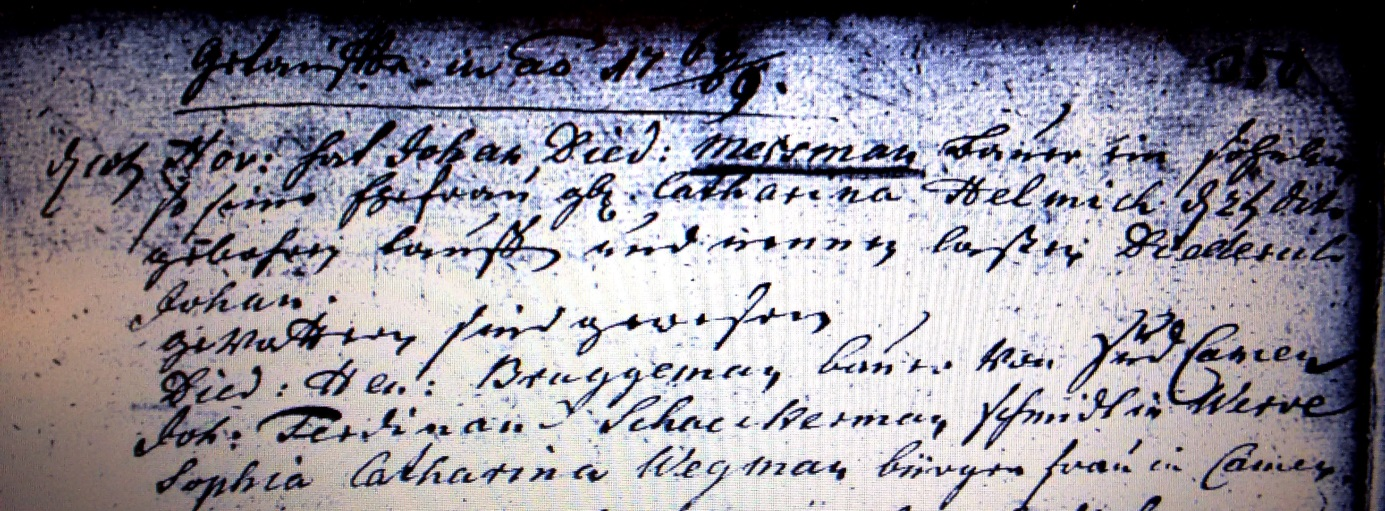 Getauffte in ao 17 68/69. 350
d 10t Nov: hat Johan Died: Messman Bauer ein söhnlein
so seine Ehefrau gb. Catharina Helmich d 2t dito
gebohren tauffen und nennen lassen Diederich
Johan.
gevattern sind gewesen
Died: Hen: Bruggeman bauer von Süd Camen
Joh: Ferdinand Schackerman schmidt in Werve
Sophia Catharina Wegman bürger frau in Camen